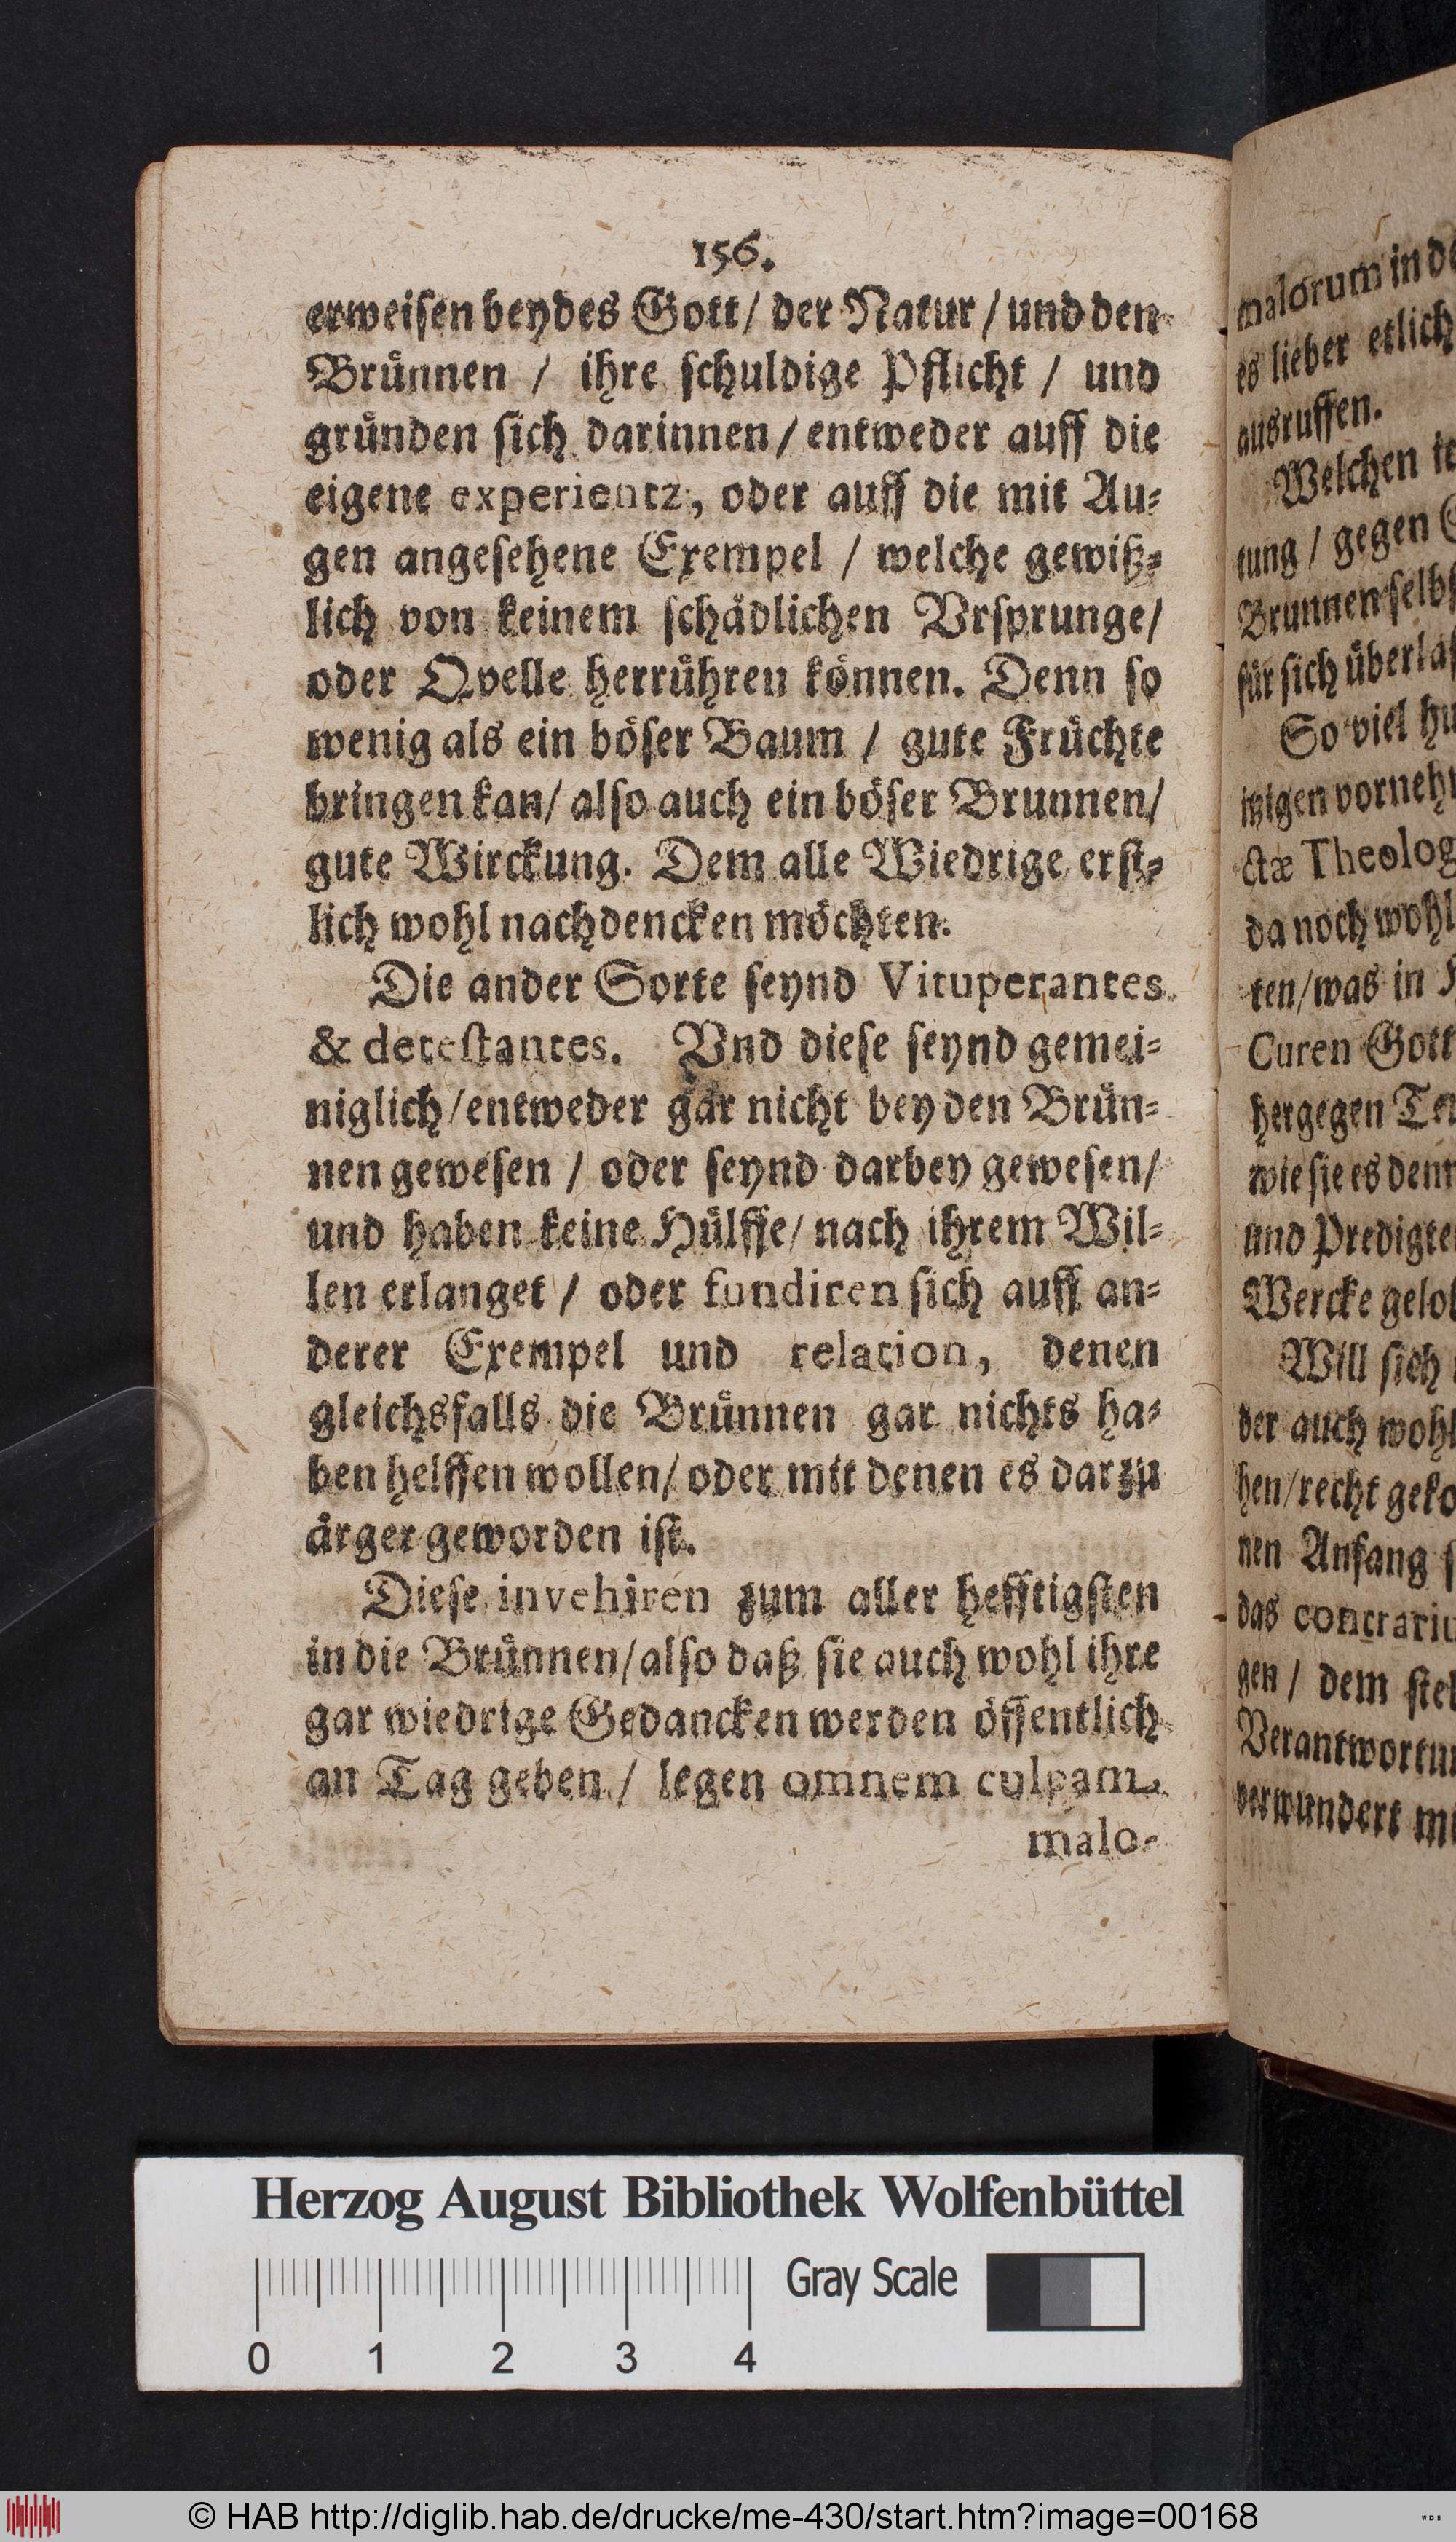 156.
erweisen beydes Gott/ der Natur / und den
Brünnen / ihre schuldige Pflicht / und
gründen sich darinnen / entweder auff die
eigene experientz, oder auff die mit Au-
gen angesehene Exempel / welche gewiß-
lich von keinem schädlichen Vrsprunge/
oder Qvelle herrühren können. Denn so
wenig als ein böser Baum / gute Früchte
bringen kan/ also auch ein böser Brunnen/
gute Wirckung. Dem alle Wiedrige erst-
lich wohl nachdencken möchten.
Die ander Sorte seynd Vituperantes
& detestantes. Vnd diese seynd gemei-
niglich/entweder gar nicht bey den Brün-
nen gewesen / oder seynd darbey gewesen/
und haben keine Hülffe/ nach ihrem Wil-
len erlanget / oder fundiren sich auff an-
derer Exempel und relation, denen
gleichsfalls die Brünnen gar nichts ha-
ben helffen wollen/ oder mit denen es darzu
ärger geworden ist.
Diese invehiren zum aller hefftigsten
in die Brünnen/also daß sie auch wohl ihre
gar wiedrige Gedancken werden öffentlich
an Tag geben / legen omnem culpam
malo-
malorum in
es lieber etlich
ausruffen.
Welchen
tung / gegen
Brunnen selbs
für sich überlas
So viel hu
itzigen vorneh
ctæ Theolog
da noch wohl
ten/was in
Curen Gott
hergegen
wie sie es
und Predigte
Wercke gelo
Will sich
der auch wohl
hen/recht geko
nen Anfang
das contrari
gen / dem
Verantwortu
verwundert
Herzog August Bibliothek Wolfenbüttel
Gray Scale
0 1 2 3 4
© HAB http://diglib.hab.de/drucke/me-430/start.htm?image=00168
WDB